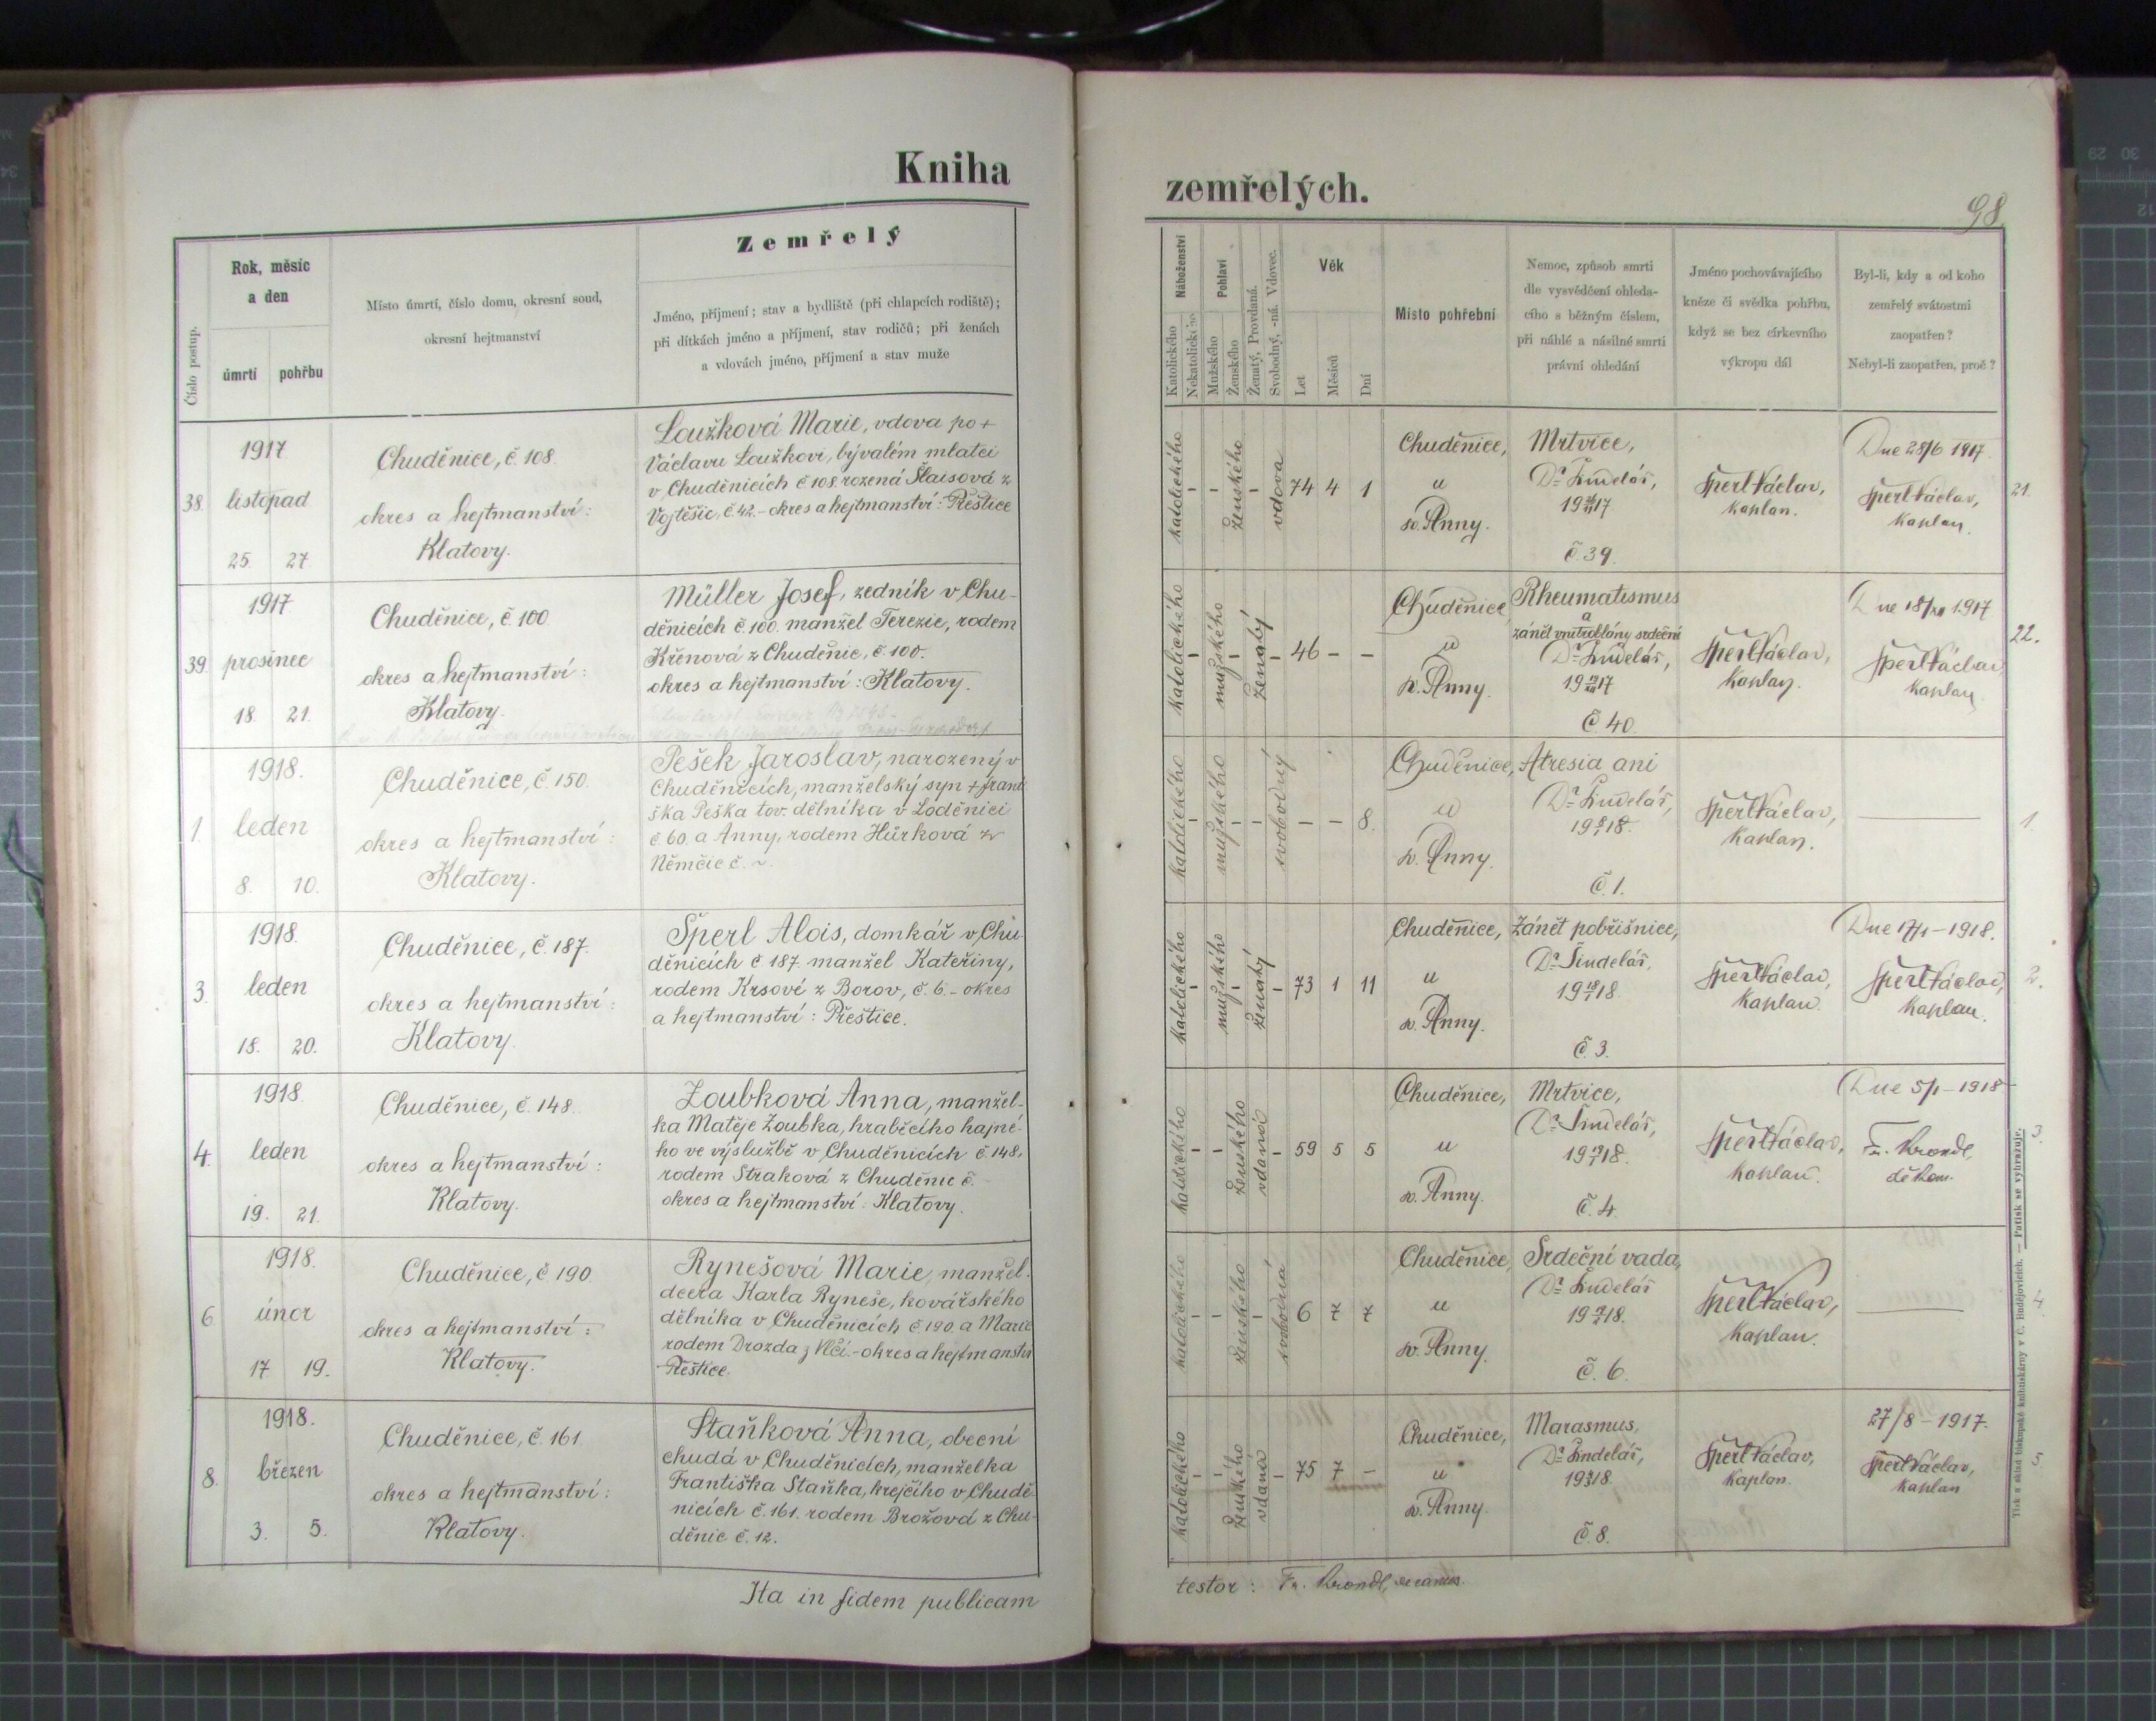 Kniha
Číslo postup.
Rok, měsíc
a den
úmrtí
pohřbu
Místo úmrtí, číslo domu, okresní soud,
okresní hejtmanství
Zemřelý
Jméno, příjmení; stav a bydliště (při chlapcích rodiště);
při dítkách jméno a příjmení, stav rodičů; při ženách
a vdovách jméno, příjmení a stav muže
38.
1917
listopad
25. 27.
Chuděnice, č. 108.
okres a hejtmanství:
Klatovy.
Loužková Marie, vdova po +
Václavu Loužkovi, bývalém mlatci
v Chuděnicích č. 108. rozená Šlaisová z
Vojtěšic, č. 42. - okres a hejtmanství: Přeštice
39.
1917
prosinec
18. 21.
Chuděnice, č. 100
okres a hejtmanství:
Klatovy.
Müller Josef, zedník v Chu-
děnicích č. 100. manžel Terezie, rodem
Křenová z Chuděnic, č. 100.
okres a hejtmanství: Klatovy.
1.
1918.
leden
8. 10.
Chuděnice, č. 150.
okres a hejtmanství:
Klatovy.
Pešek Jaroslav, narozený v
Chuděnicích, manželský syn + Franti
ška Peška tov. dělníka v Loděnici
č. 60. a Anny, rodem Hůrková z
Němčic č. ~
3.
1918.
leden
18. 20.
Chuděnice, č. 187.
okres a hejtmanství:
Klatovy.
Šperl Alois, domkář v Chu-
děnicích č 187. manžel Kateřiny,
rodem Krsové z Borov, č. 6. - okres
a hejtmanství: Přeštice.
4.
1918.
leden
19. 21.
Chuděnice, č. 148.
okres a hejtmanství:
Klatovy.
Zoubková Anna, manžel-
ka Matěje Zoubka, hraběcího hajné-
ho ve výslužbě v Chuděnicích č. 148,
rodem Straková z Chuděnic č. -
okres a hejtmanství: Klatovy.
6.
1918.
únor
17 19.
Chuděnice, č. 190.
okres a hejtmanství:
Klatovy.
Rynešová Marie, manžel.
dcera Karla Ryneše, kovářského
dělníka v Chuděnicích č. 190. a Marie
rodem Drozda z Vlčí. - okres a hejtmanství
Přeštice.
8.
1918.
březen
3. 5.
Chuděnice, č. 161.
okres a hejtmanství:
Klatovy.
Staňková Anna, obecní
chudá v Chuděnicích, manželka
Františka Staňka, krejčího v Chudě-
nicích č. 161. rodem Brožová z Chu-
děnic č. 12.
Ita in fidem publicam
zemřelých.
98
Náboženství
Katolického
Nekatolického
Pohlaví
Mužského
Ženského
Ženatý, Provdaná.
Svobodný, -ná. Vdovec.
Věk
Let
Měsíců
Dní
Místo pohřební
Nemoc, způsob smrti
dle vysvědčení ohleda-
cího s běžným číslem,
při náhlé a násilné smrti
právní ohledání
Jméno pochovávajícího
kněze či svědka pohřbu,
když se bez církevního
výkropu dál
Byl-li, kdy a od koho
zemřelý svátostmi
zaopatřen?
Nebyl-li zaopatřen, proč?
katolického - - ženského - vdova 74 4 1
Chuděnice,
u
sv. Anny.
Mrtvice,
Dr. Šindelář,
19 26/XI 17
č. 39.
Šperl Václav,
kaplan.
Dne 28/6 1917.
Šperl Václav,
kaplan.
21.
katolického - mužského - ženatý - 46 - -
Chuděnice
u
sv. Anny.
Rheumatismus
a
zánět vnitroblány srdeční
Dr. Šindelář,
19 19/XII 17
č. 40.
Šperl Václav,
kaplan.
Dne 18/XII 1917
Šperl Václav,
kaplan.
22.
katolického - mužského - - svobodný - - 8.
Chuděnice,
u
sv. Anny.
Atresia ani
Dr. Šindelář,
19 8/I 18.
č. 1.
Šperl Václav,
kaplan.
1.
katolického - mužského - ženatý - 73 1 11
Chuděnice,
u
sv. Anny.
Zánět pobřišnice,
Dr. Šindelář,
19 18/I 18
č. 3.
Šperl Václav,
kaplan.
Dne 17/1 - 1918.
Šperl Václav,
kaplan.
2.
katolického - - ženského vdaná - 59 5 5
Chuděnice,
u
sv. Anny.
Mrtvice,
Dr. Šindelář,
19 19/I 18.
č. 4.
Šperl Václav,
kaplan.
Dne 5/1 - 1918
Fr. Krondl,
děkan.
3.
katolického - - ženského - svobodná 6 7 7
Chuděnice,
u
sv. Anny.
Srdeční vada,
Dr. Šindelář
č. 6.
Šperl Václav,
kaplan.
4.
katolického - - ženského vdaná - 75 7 -
Chuděnice,
u
sv. Anny.
Marasmus,
Dr. Šindelář,
č. 8.
Šperl Václav,
kaplan.
27/8 - 1917.
Šperl Václav,
kaplan
5.
testor: Fr. Krondl, decanus.
Tisk a sklad biskupské knihtiskárny v Č. Budějovicích. — Patisk se vyhrazuje.